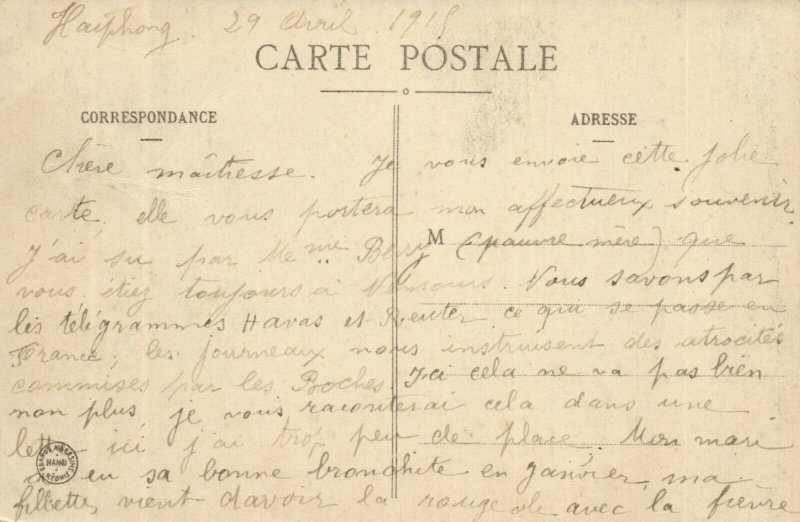 Haiphong. 29 Avril. 1915
CARTE POSTALE
CORRESPONDANCE
ADRESSE
Chère maîtresse. Je vous envoie cette jolie
carte, elle vous portera mon affectueux souvenir.
J'ai su par Me me Berry (pauvre mère) que
M
vous étiez toujours à Nemours. Nous savons par
les télégrammes Havas et Reuter ce qui se passe en
France; les journeaux nous instruisent des atrocités
commises par les Boches. Ici cela ne va pas bien
non plus, je vous raconterai cela dans une
lettre ici j'ai trop peu de place. Mon mari
a eu sa bonne bronchite en janvier, ma
fillette vient d'avoir la rougeole avec la fièvre
GRANDS MAGASINS RÉUNIS
HANOI